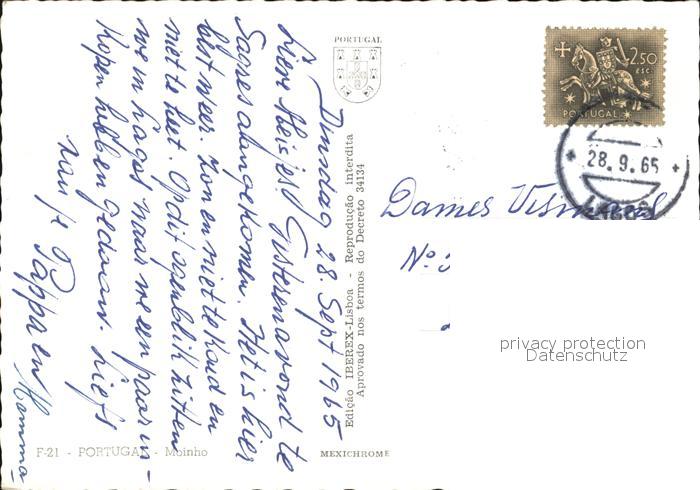 PORTUGAL
Dinsdag 28. Sept 1965
Lieve Meisjes! Gisterenavond te
Sagres aangekomen. Het is hier
best weer. Zon en niet te koud en
niet te heet. Op dit ogenblik zitten
we in Lagos waar we een paar in-
kopen hebben gedaan. Liefs
van je Pappa en
Mamma
F-21 - PORTUGAL - Moinho
Edição IBEREX-Lisboa - Reprodução interdita
Aprovado nos termos do Decreto 34134
MEXICHROME
2$50
ESC.
PORTUGAL
28.9.65
LAGOS
Dames
No:
privacy protection
Datenschutz